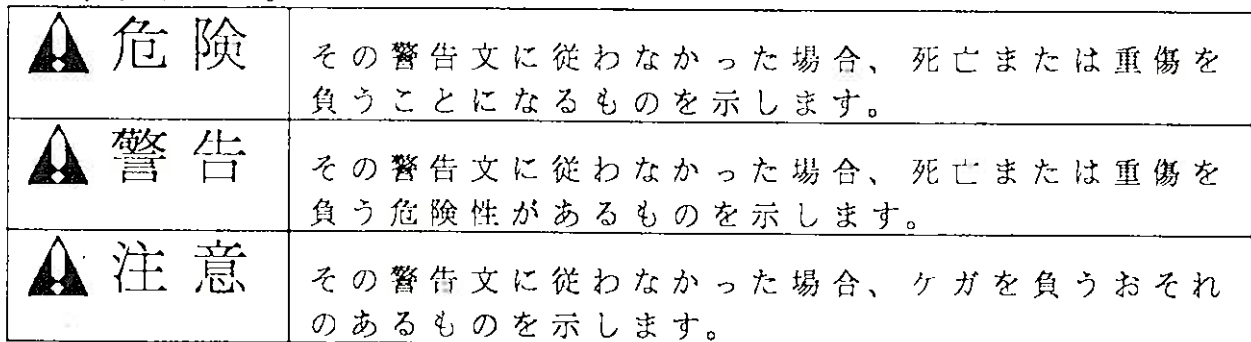 危険
その警告文に従わなかった場合、死亡または重傷を
負うことになるものを示します。
警告
その警告文に従わなかった場合、死亡または重傷を
負う危険性があるものを示します。
注意
その警告文に従わなかった場合、ケガを負うおそれ
のあるものを示します。